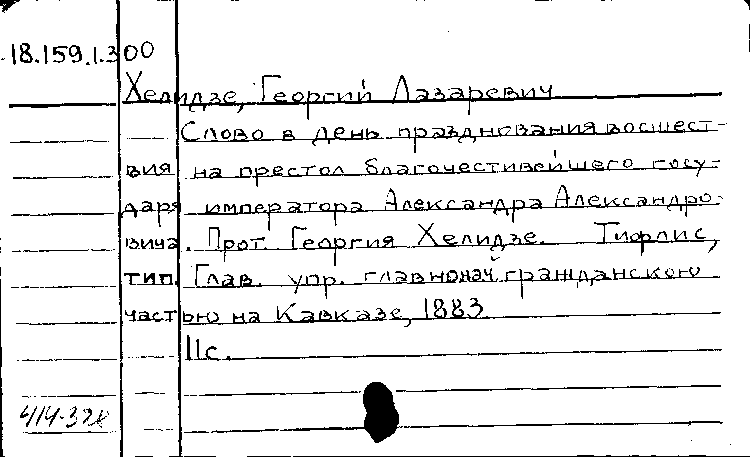 18.159.1.300
Хелидзе, Георгий Лазаревич
Слово в день празднования восшест-
вия на престол благочестивейшего госу-
даря императора Александра Александро-
вича. Прот. Георгия Хелидзе. Тифлис,
тип. Глав. упр. главнонач. гражданскою
частью на Кавказе, 1883
11с.
414-328